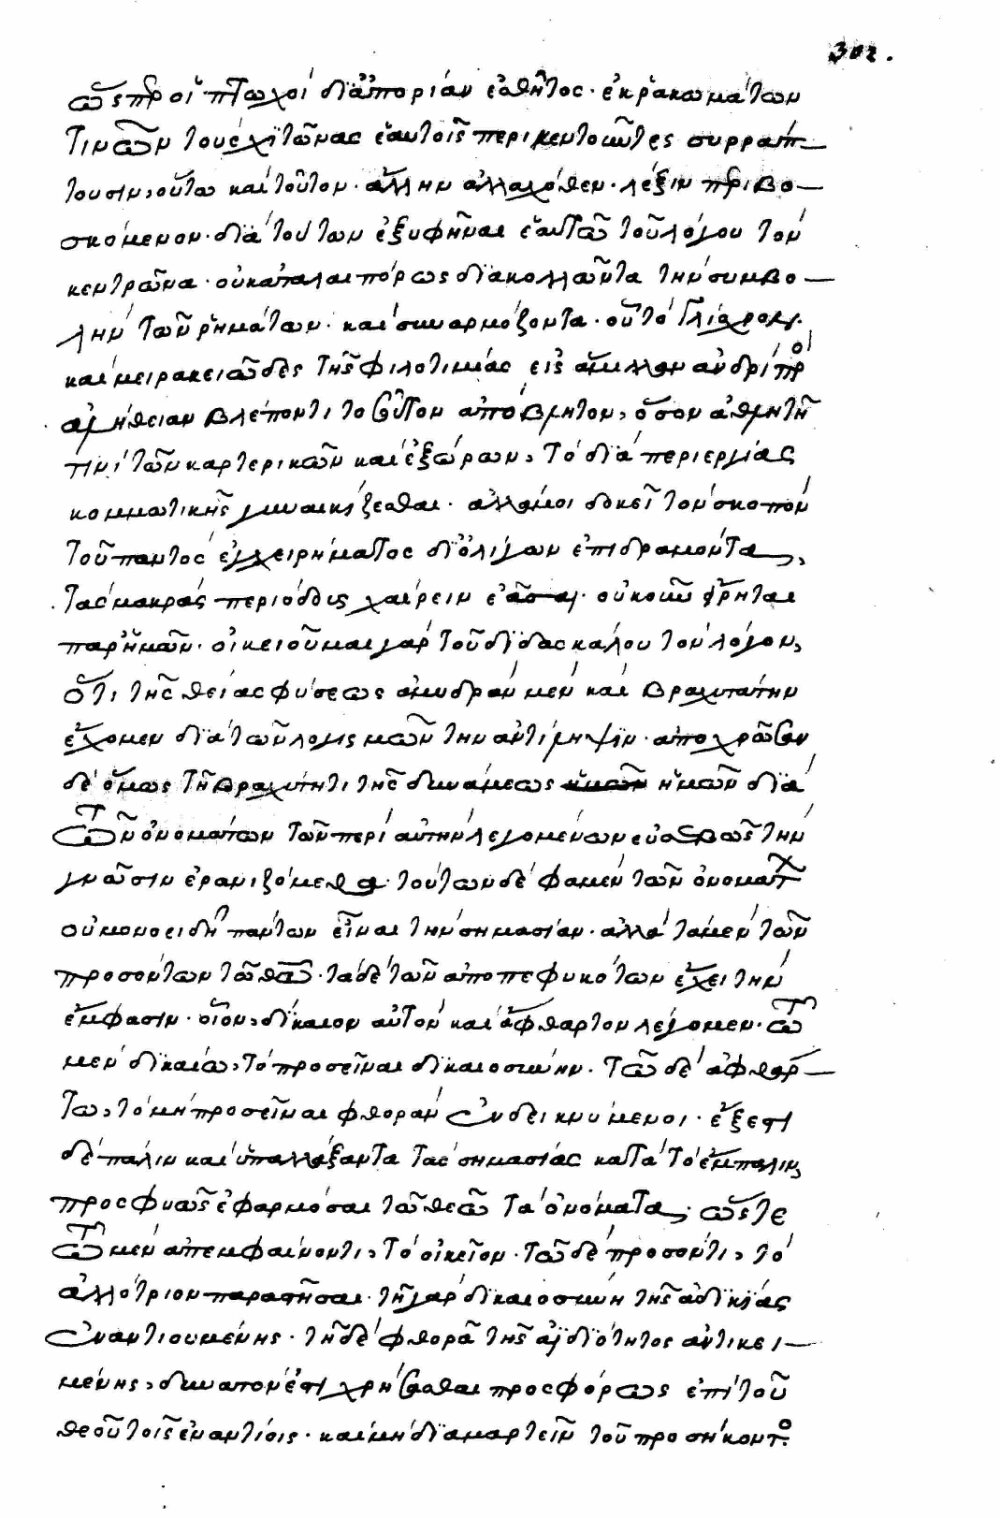 302.
ὥςπερ οἱ πτωχοὶ δι' ἀπορίαν ἐσθῆτος · ἐκ ῥακωμάτων
τινῶν τοὺς χιτῶνας ἑαυτοῖς περικεντοῦντες συρράπ–
τουσιν, οὕτω καὶ τοῦτον · ἄλλην ἀλλαχόθεν · λέξιν περιβο–
σκόμενον · διὰ τούτων ἐξυφῆναι ἑαυτῶ τοῦ λόγου τὸν
κεντρῶνα · οὐκ ἀταλαιπόρως διακολλῶντα τὴν συμβο–
λὴν τῶν ῥημάτων · καὶ συναρμόζοντα · οὗ τὸ γλίσχρον
καὶ μειρακειῶδες τῆς φιλοτιμίας εἰς ἅμιλλαν ἀνδρὶ πρὸς
ἀλήθειαν βλέποντι τοσοῦτον ἀπόβλητον, ὅσον ἀθλητῆ
τινὶ τῶν καρτερικῶν καὶ ἐξώρων, τὸ διὰ περιεργίας
κομμωτικῆς γυναικίζεσθαι · ἀλλά μοι δοκεῖ τὸν σκοπὸν
τοῦ παντὸς ἐγχειρήματος δι' ὀλίγων ἐπιδραμόντα,
τὰς μακρὰς περιόδους χαίρειν ἐᾶσαι · οὐκοῦν εἴρηται
παρ' ἡμῶν · οἰκειοῦμαι γὰρ τοῦ διδασκάλου τὸν λόγον,
ὅτι τῆς θείας φύσεως ἀμυδρὰν μὲν καὶ βραχυτάτην
ἔχομεν διὰ τῶν λογισμῶν τὴν ἀντίληψιν · ἀποχρῶσαν
δὲ ὅμως τῆ βραχύτητι τῆς δυνάμεως ἡμῶν διὰ
τῶν ὀνομάτων τῶν περὶ αὐτὴν λεγομένων εὐσεβῶς τὴν
γνῶσιν ἐρανιζόμεθα · τούτων δὲ φαμὲν τῶν ὀνομάτων
οὐ μονοειδῆ πάντων εἶναι τὴν σημασίαν · ἀλλὰ τὰ μὲν τῶν
προσόντων τῶ θεῶ · τὰ δὲ τῶν ἀποπεφυκότων ἔχει τὴν
ἔμφασιν · οἷον, δίκαιον αὐτὸν καὶ ἄφθαρτον λέγομεν · τῶ
μὲν δικαίω, τὸ προσεῖναι δικαιοσύνην · τῶ δὲ ἀφθάρ–
τω, τὸ μὴ προσεῖναι φθορὰν ἐνδεικνύμενοι · ἔξεστι
δὲ πάλιν καὶ ὑπαλλάξαντα τὰς σημασίας κατὰ τὸ ἔμπαλιν,
προσφυῶς ἐφαρμόσαι τῶ θεῶ τὰ ὀνόματα, ὥςτε
τῶ μὲν ἀπεμφαίνοντι, τὸ οἰκεῖον · τῶ δὲ προσόντι, τὸ
ἀλλότριον παραστῆσαι · τῆ γὰρ δικαιοσύνη τῆς ἀδικίας
ἐναντιουμένης · τῆ δὲ φθορᾶ τῆς ἀϊδιότητος ἀντικει–
μένης, δυνατόν ἐστι χρήσασθαι προσφόρως ἐπὶ τοῦ
θεοῦ τοῖς ἐναντίοις · καὶ μὴ διαμαρτεῖν τοῦ προσήκοντος